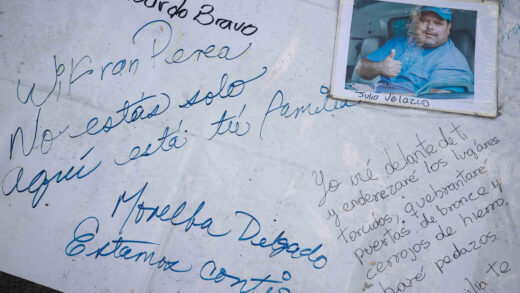 ardo Bravo
Wifran Perea
No estás solo
Aquí está tú familia
Julio Velazco
Morelba Delgado
Estamos conti
Yo iré delante de ti
y enderezaré los lugares
torcidos, quebrantaré
puertas de bronce y
cerrojos de hierro,
haré pedazos.
ilia te